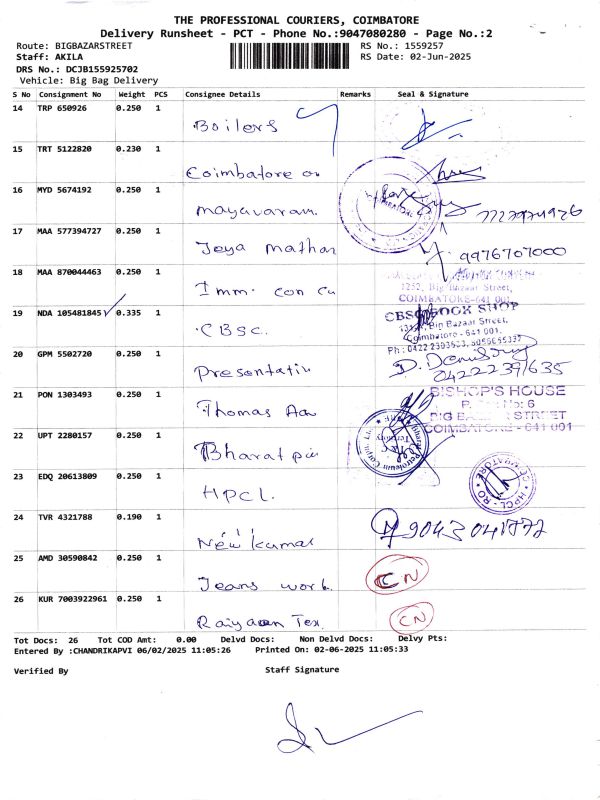 THE PROFESSIONAL COURIERS, COIMBATORE
Delivery Runsheet - PCT - Phone No.:9047080280 - Page No.:2
Route: BIGBAZARSTREET RS No.: 1559257
Staff: AKILA RS Date: 02-Jun-2025
DRS No.: DCJB155925702
Vehicle: Big Bag Delivery
S No Consignment No Weight PCS Consignee Details Remarks Seal & Signature
14 TRP 650926 0.250 1 Boilers
15 TRT 5122820 0.230 1 Coimbatore
16 MYD 5674192 0.250 1 mayavaram.
17 MAA 577394727 0.250 1 Jeya mathan 9976707000
18 MAA 870044463 0.250 1 Imm. con cu
1252, Big Bazaar Street,
COIMBATORE-641 001
19 NDA 105481845 0.335 1 CBSC.
CBSC BOOK SHOP
Big Bazaar Street,
Coimbatore - 641 001.
20 GPM 5502720 0.250 1 presentatin
04222391635
21 PON 1303493 0.250 1 Thomas
BISHOP'S HOUSE
BIG BAZAAR STREET
COIMBATORE - 641 001
22 UPT 2280157 0.250 1 Bharat
23 EDQ 20613809 0.250 1 HPCL.
HPCL - RO COIMBATORE
24 TVR 4321788 0.190 1 New kumar
25 AMD 30590842 0.250 1 Jeans work. CN
26 KUR 7003922961 0.250 1 Tex. CN
Tot Docs: 26 Tot COD Amt: 0.00 Delvd Docs: Non Delvd Docs: Delvy Pts:
Entered By :CHANDRIKAPVI 06/02/2025 11:05:26 Printed On: 02-06-2025 11:05:33
Verified By Staff Signature